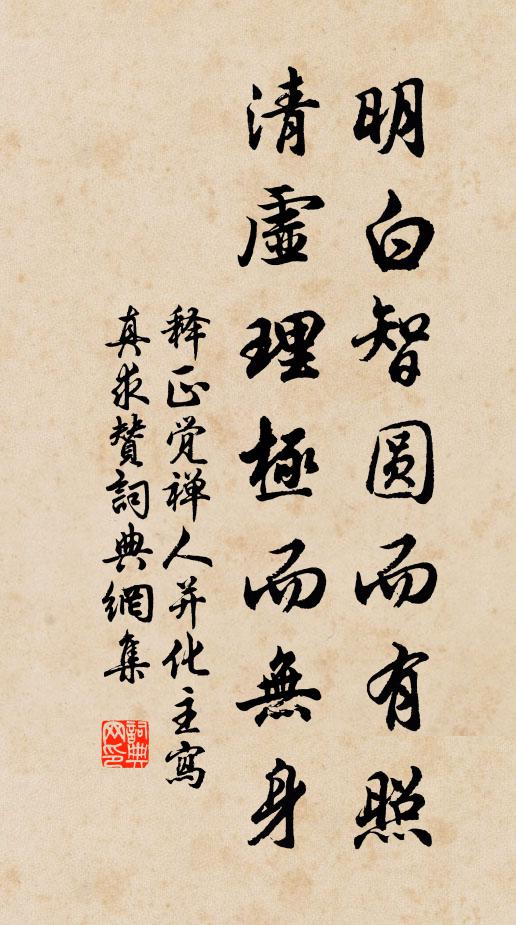 明白智圆而有照
清虛理極而無身
释正觉禅人并化主寫
真求赞詞典網集
詞典网印